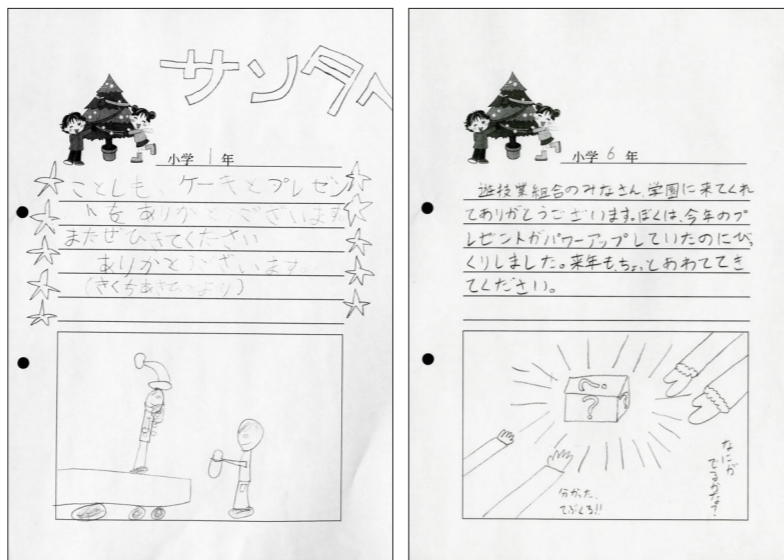 サンタへ
小学 1 年
ことしも、ケーキとプレゼン
トをありがとうございます
またぜひきてください
ありがとうございます。
小学 6 年
遊技業組合のみなさん、学園に来てくれ
てありがとうございます。ぼくは、今年のプ
レゼントがパワーアップしていたのにびっ
くりしました。来年も、ちょっとあわててき
てください。
?
?
なにが
でるかな?
分かった、
てぶくろ!!